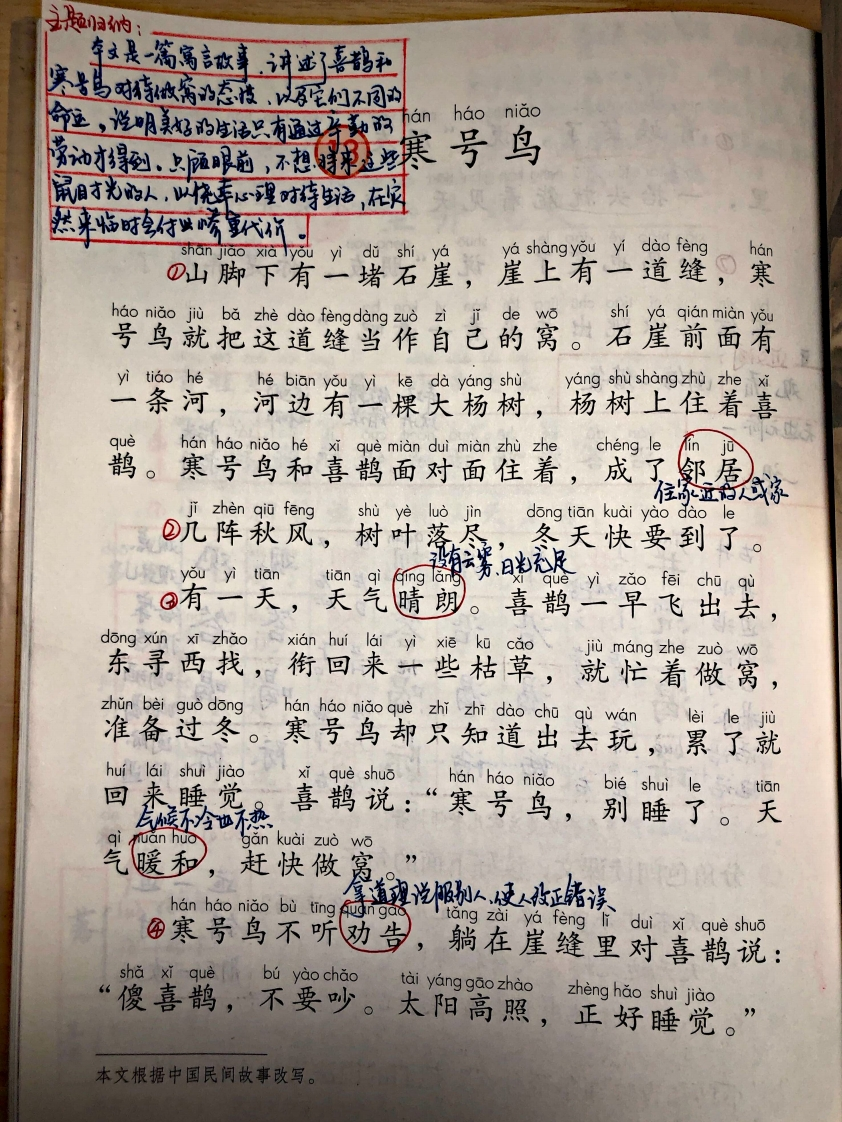 主题归纳：
本文是一篇寓言故事，讲述了喜鹊和
寒号鸟对待做窝的态度，以及它们不同的
命运，说明美好的生活只有通过辛勤的
劳动才得到。只顾眼前，不想将来这些
鼠目寸光的人，以侥幸心理对待生活，在灾
然来临时会付出惨重代价。
13
hán háo niǎo
寒号鸟
shān jiǎo xià yǒu yì dǔ shí yá yá shàng yǒu yí dào fèng hán
①山脚下有一堵石崖，崖上有一道缝，寒
háo niǎo jiù bǎ zhè dào fèng dàng zuò zì jǐ de wō shí yá qián miàn yǒu
号鸟就把这道缝当作自己的窝。石崖前面有
yì tiáo hé hé biān yǒu yì kē dà yáng shù yáng shù shàng zhù zhe xǐ
一条河，河边有一棵大杨树，杨树上住着喜
què hán háo niǎo hé xǐ què miàn duì miàn zhù zhe chéng le lín jū
鹊。寒号鸟和喜鹊面对面住着，成了邻居
住家近的人或家
jǐ zhèn qiū fēng shù yè luò jìn dōng tiān kuài yào dào le
②几阵秋风，树叶落尽，冬天快要到了。
没有云雾，日光充足
yǒu yì tiān tiān qì qíng lǎng xǐ què yì zǎo fēi chū qù
③有一天，天气晴朗。喜鹊一早飞出去，
dōng xún xī zhǎo xián huí lái yì xiē kū cǎo jiù máng zhe zuò wō
东寻西找，衔回来一些枯草，就忙着做窝，
zhǔn bèi guò dōng hán háo niǎo què zhǐ zhī dào chū qù wán lèi le jiù
准备过冬。寒号鸟却只知道出去玩，累了就
huí lái shuì jiào xǐ què shuō hán háo niǎo bié shuì le tiān
回来睡觉。喜鹊说：“寒号鸟，别睡了。天
气候不冷也不热
qì nuǎn huo gǎn kuài zuò wō
气暖和，赶快做窝。”
拿道理说服别人，使人改正错误
hán háo niǎo bù tīng quàn gào tǎng zài yá fèng lǐ duì xǐ què shuō
④寒号鸟不听劝告，躺在崖缝里对喜鹊说：
shǎ xǐ què bú yào chǎo tài yáng gāo zhào zhèng hǎo shuì jiào
“傻喜鹊，不要吵。太阳高照，正好睡觉。”
本文根据中国民间故事改写。